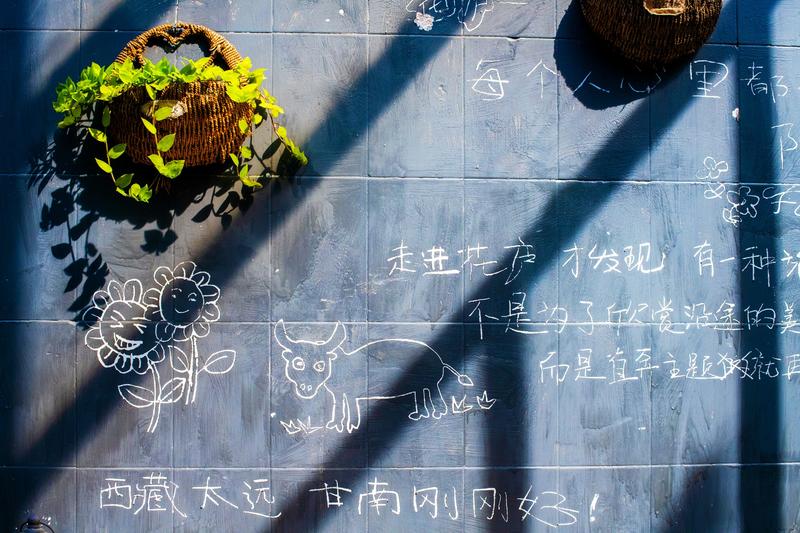 每个人心里都
走进花庐 才发现 有一种
不是为了欣赏沿途的美
而是直至主题
西藏太远 甘南刚刚好！